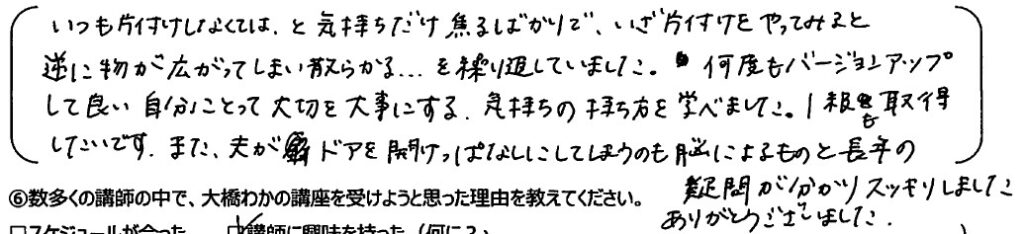 いつも片付けしなくては、と気持ちだけ焦るばかりで、いざ片付けをやってみると
逆に物が広がってしまい散らかる...を繰り返していました。何度もバージョンアップ
して良い 自分にとって大切を大事にする、気持ちの持ち方を学べました。1級も取得
したいです。また、夫がドアを開けっぱなしにしてしまうのも脳によるものと長年の
疑問が分かりスッキリしました
ありがとうございました。
⑥数多くの講師の中で、大橋わかの講座を受けようと思った理由を教えてください。
□スケジュールが合った □講師に興味を持った(何に?